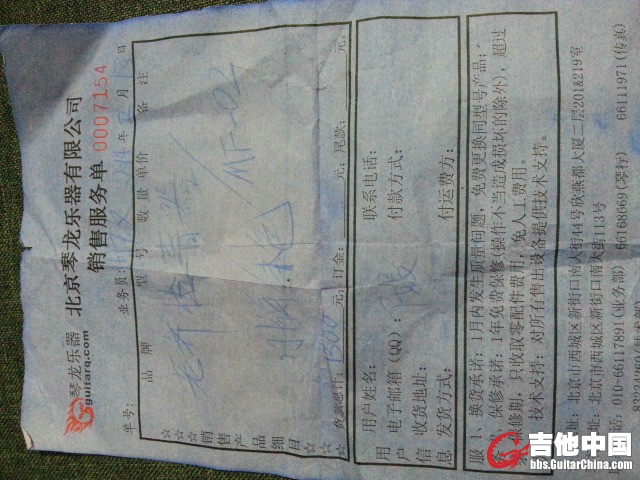 琴龙乐器
guitarq.com
北京琴龙乐器有限公司
销售服务单
0007154
单号：
业务员：
年 月 日
品牌 型号 数量 单价 备注
☆☆☆销售产品细目☆☆☆
MF-02
1500 元，订金： 元，尾款： 元。
用户信息
用户姓名： 联系电话：
电子邮箱（QQ）：
收货地址： 付款方式：
发货方式： 付运费方：
服务
1、换货承诺：1月内发生质量问题，免费更换同型号产品；
保修承诺：1年免费保修（操作不当造成损坏的除外），超过
保修期，只收取零配件费用，免人工费用。
技术支持：对所有售出设备提供技术支持。
地址：北京市西城区新街口南大街44号欣燕都大厦二层201&219室
北京市西城区新街口南大街113号
010-66117891（业务部） 66168669（琴行） 66111971（传真）
吉他中国
bbs.GuitarChina.com